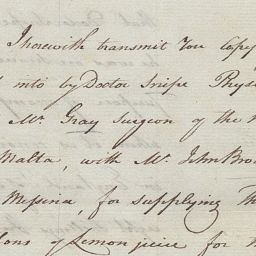 I herewith transmit You Copy
into by Doctor Snipe Physi
Mr. Gray Surgeon of the
Malta, with Mr. John Bro
Messina, for supplying Th
ons of Lemon juice for